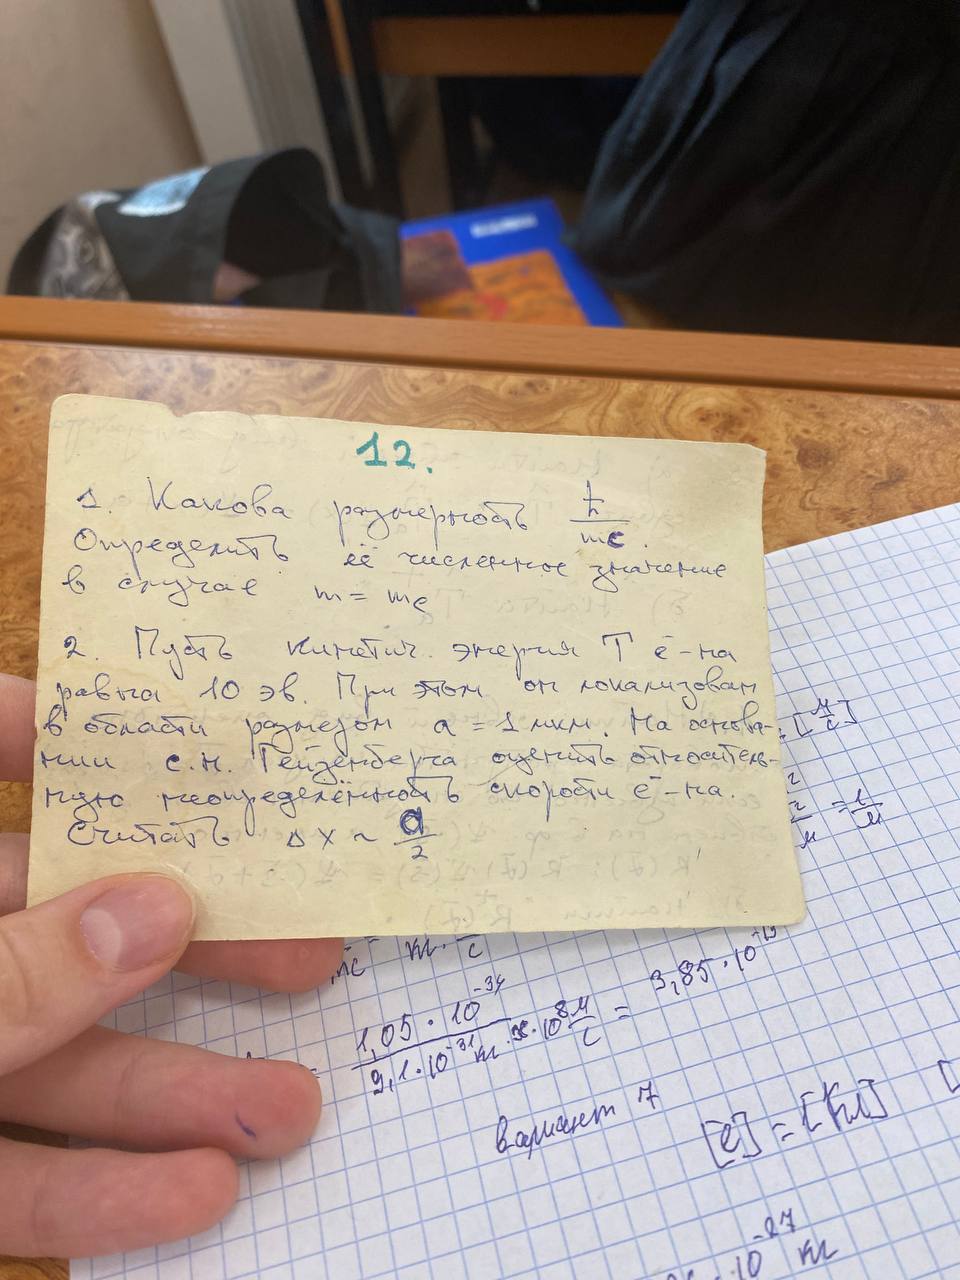 12.
1. Какова размерность ħ/mc.
Определить её численное значение
в случае m = me
2. Пусть кинетич. энергия T ē-на
равна 10 эв. При этом он локализован
в области размером a = 1 мкм. На основа-
нии с.н. Гейзенберга оценить относитель-
ную неопределённость скорости ē-на.
Считать Δx ~ a/2
= [м/с]
= 1/м
кг · /с
= 1,05 · 10^-34 / 9,1 · 10^-31 кг · 10^8 м/с = 3,85 · 10^-13
вариант 7
[e] = [Кл]
10^-27 кг